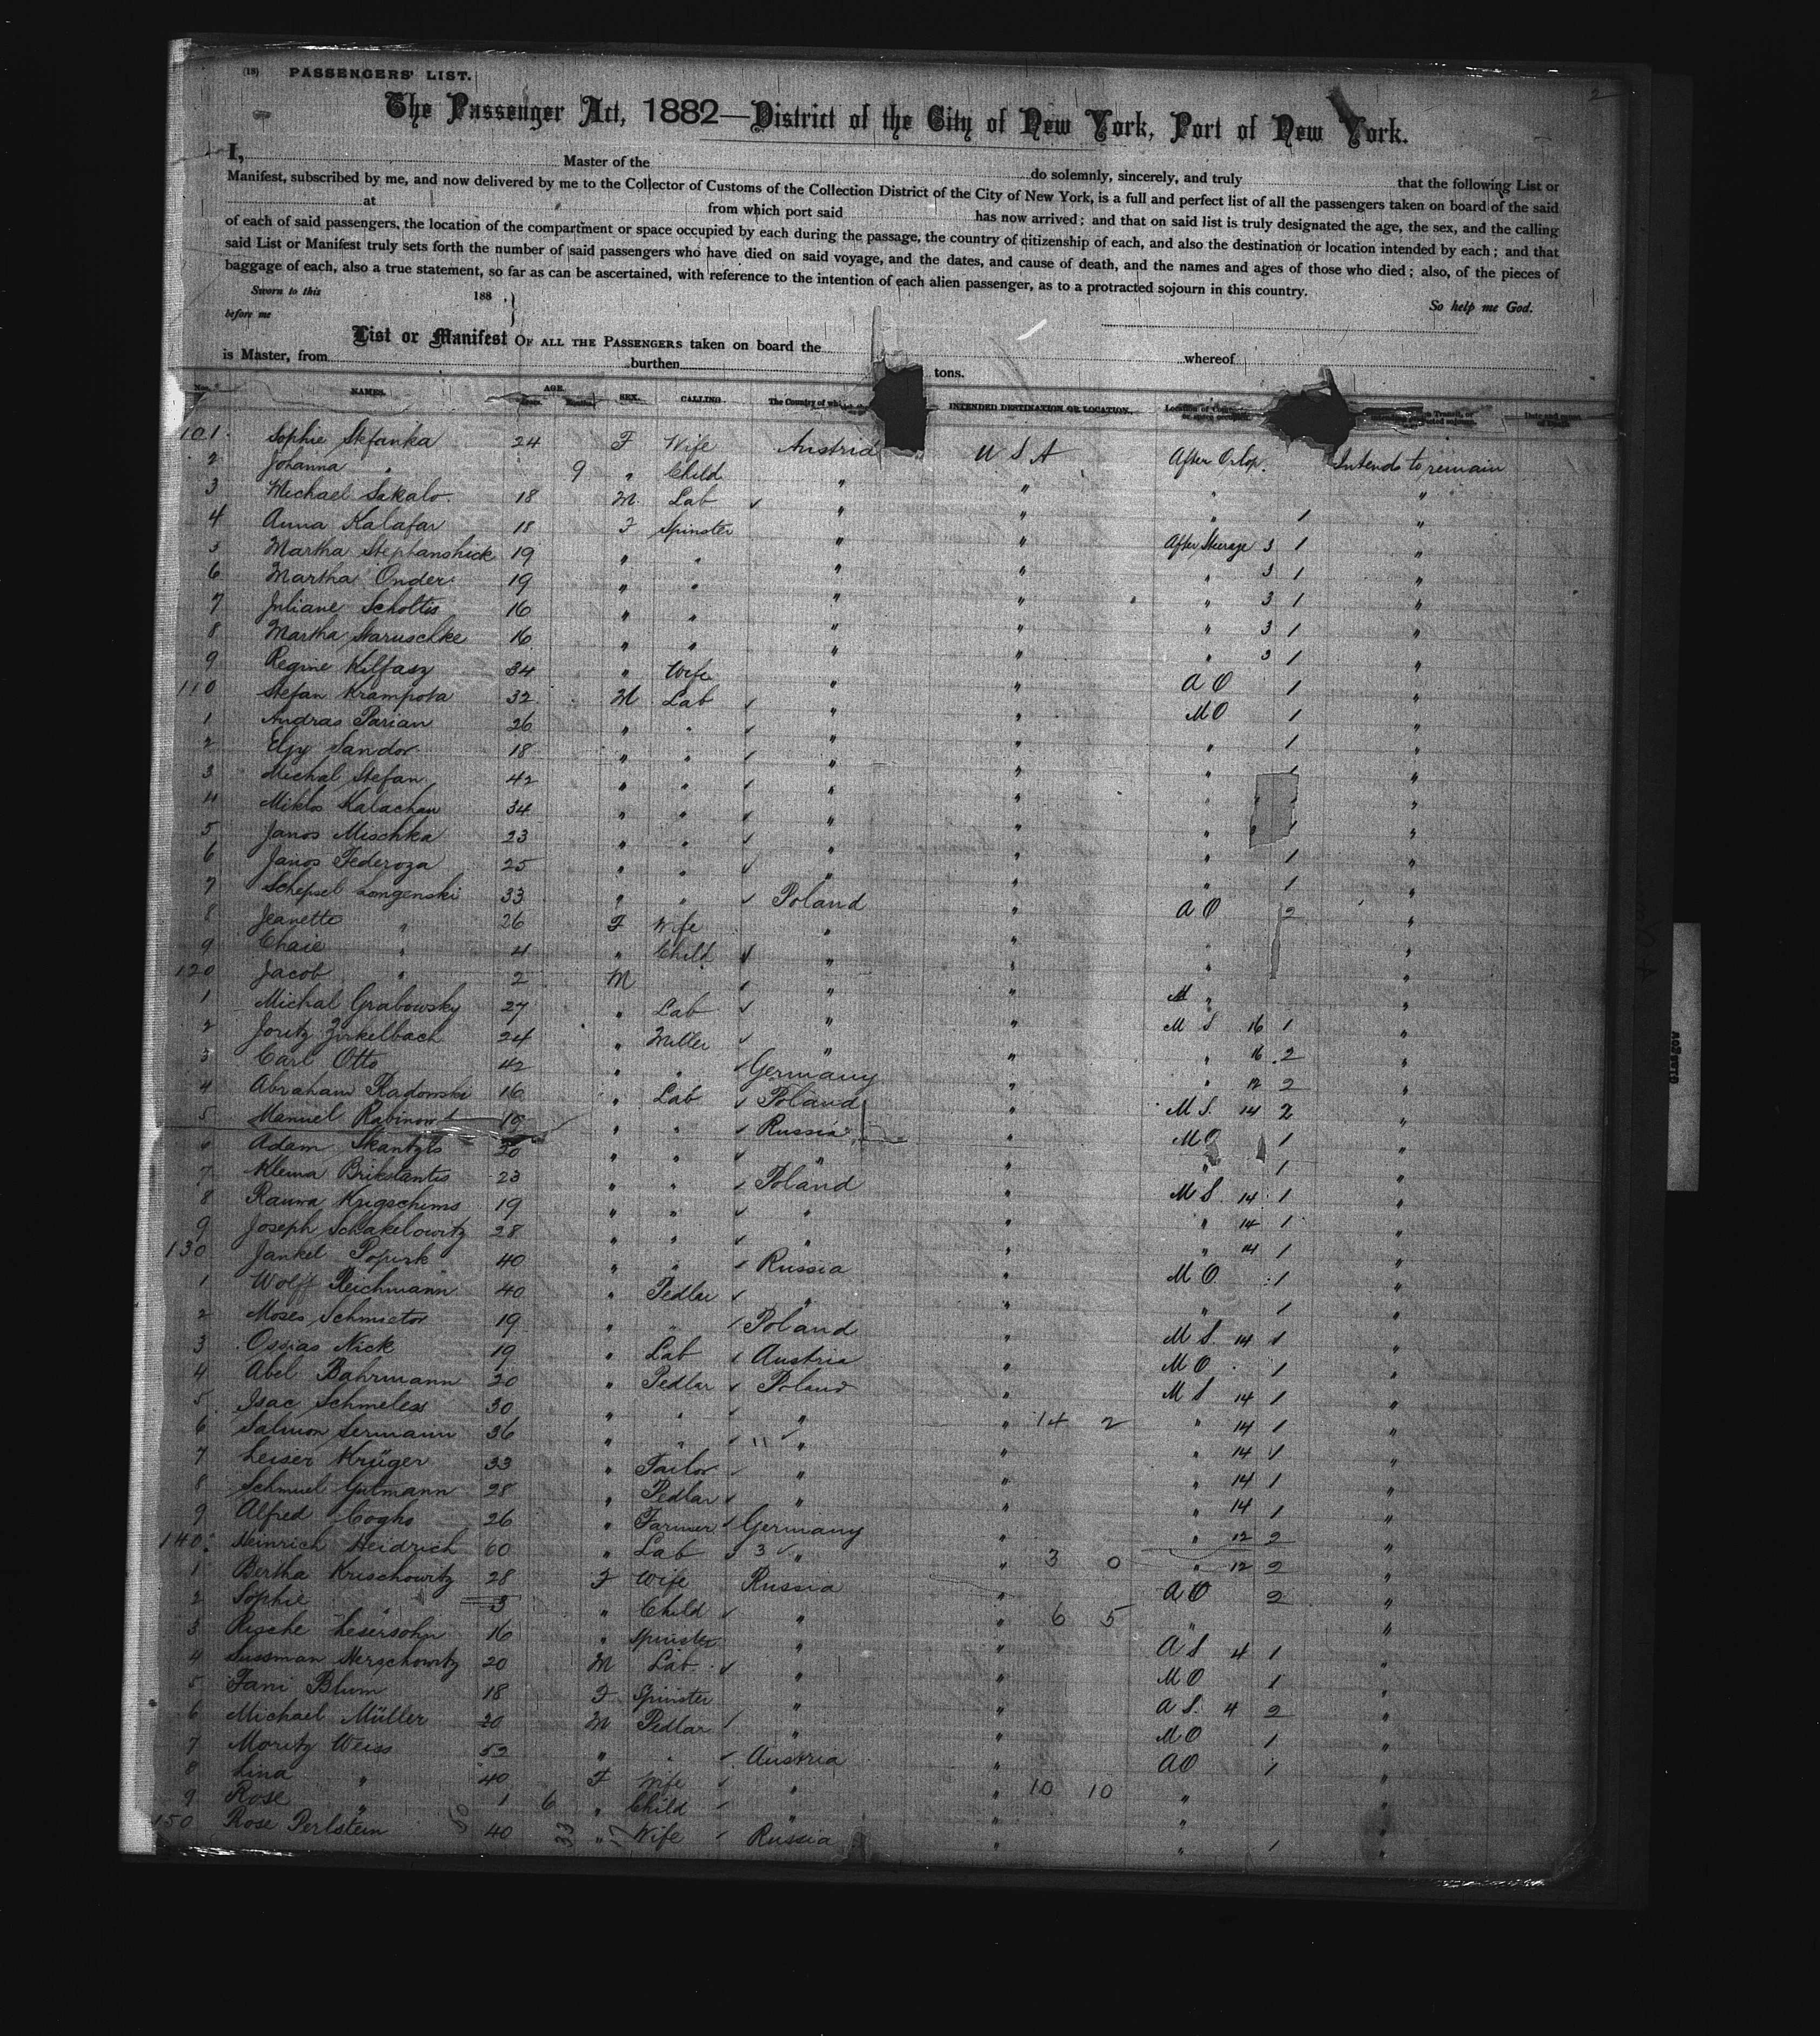 (18) PASSENGERS' LIST.
2
The Passenger Act, 1882—District of the City of New York, Port of New York.
I, Master of the do solemnly, sincerely, and truly that the following List or
Manifest, subscribed by me, and now delivered by me to the Collector of Customs of the Collection District of the City of New York, is a full and perfect list of all the passengers taken on board of the said
at from which port said has now arrived; and that on said list is truly designated the age, the sex, and the calling
of each of said passengers, the location of the compartment or space occupied by each during the passage, the country of citizenship of each, and also the destination or location intended by each; and that
said List or Manifest truly sets forth the number of said passengers who have died on said voyage, and the dates, and cause of death, and the names and ages of those who died; also, of the pieces of
baggage of each, also a true statement, so far as can be ascertained, with reference to the intention of each alien passenger, as to a protracted sojourn in this country.
Sworn to this 188 . So help me God.
before me
List or Manifest OF ALL THE PASSENGERS taken on board the whereof
is Master, from burthen tons.
Nos. NAMES. AGE. Years. Months. SEX. CALLING. The Country of INTENDED DESTINATION OR LOCATION. Location of Transit, or Date and cause of Death.
101 Sophie Stefanka 24 F Wife Austria U S A After Orlop. Intends to remain
2 Johanna " 9 " Child " " " "
3 Michael Sakalo 18 M Lab " " " 1 "
4 Anna Kalafar 18 F Spinster " " After Steerage 3 1 "
5 Martha Stephanshick 19 " " " " " 3 1 "
6 Martha Onder 19 " " " " " 3 1 "
7 Juliane Scholtis 16 " " " " " 3 1 "
8 Martha Staruschke 16 " " " " " 3 1 "
9 Regine Kilfasy 34 " Wife " " A O 1 "
110 Stefan Krampota 32 M Lab " " M O 1 "
1 Andras Parian 26 " " " " " 1 "
2 Elgy Sandor 18 " " " " " 1 "
3 Michal Stefan 42 " " " " " "
4 Miklos Kalachan 34 " " " " " 1 "
5 Janos Mischka 23 " " " " " 1 "
6 Janos Federoza 25 " " " " " 1 "
7 Schepsel Longenski 33 " " Poland " A O 2 "
8 Jeanette " 26 F Wife " " "
9 Chaie " 4 " Child " " " "
120 Jacob " 2 M " " "
1 Michal Grabowsky 27 " Lab " " M S 16 1 "
2 Joritz Zirkelbach 24 " Miller " " " 16 2 "
3 Carl Otto 42 " " Germany " " 12 2 "
4 Abraham Radowski 16 " Lab Poland " M S. 14 2 "
5 Manuel Rabinow 19 " " Russia " M O 1 "
6 Adam Skantzls 20 " " " " " 1 "
7 Klema Brikstantis 23 " " Poland " M S. 14 1 "
8 Rauwa Krigschims 19 " " " " " 14 1 "
9 Joseph Schakelowitz 28 " " " " " 14 1 "
130 Jankel Popurk 40 " " Russia " M O. 1 "
1 Wolff Reichmann 40 " Pedlar " " " 1 "
2 Moses Schmictor 19 " " Poland " M S. 14 1 "
3 Ossias Nick 19 " Lab Austria " M O 1 "
4 Abel Bahrmann 20 " Pedlar Poland " M S 14 1 "
5 Isac Schmeless 30 " " " " 14 2 " 14 1 "
6 Salmon Sermann 36 " " 11 " " " 14 1 "
7 Leiser Krüger 33 " Tailor " " " 14 1 "
8 Schmuel Gutmann 28 " Pedlar " " " 14 1 "
9 Alfred Cogho 26 " Farmer Germany " " 12 2 "
140 Heinrich Heidrich 60 " Lab 3 " " 3 0 " 12 2 "
1 Bertha Krischowitz 28 F Wife Russia " A O 2 "
2 Sophie " 3 " Child " " 6 5 " "
3 Rische Lesersohn 16 " Spinster " " A S 4 1 "
4 Sussman Herschowitz 20 M Lab " " M O 1 "
5 Fani Blum 18 F Spinster " " A S. 4 2 "
6 Michael Müller 20 M Pedlar " " M O 1 "
7 Moritz Weiss 52 " " Austria " A O 1 "
8 Lina " 40 F Wife " " 10 10 " "
9 Rose " 1 6 " Child " " " "
150 Rose Perlstein 40 " Wife Russia " " 1 "
50 33 17